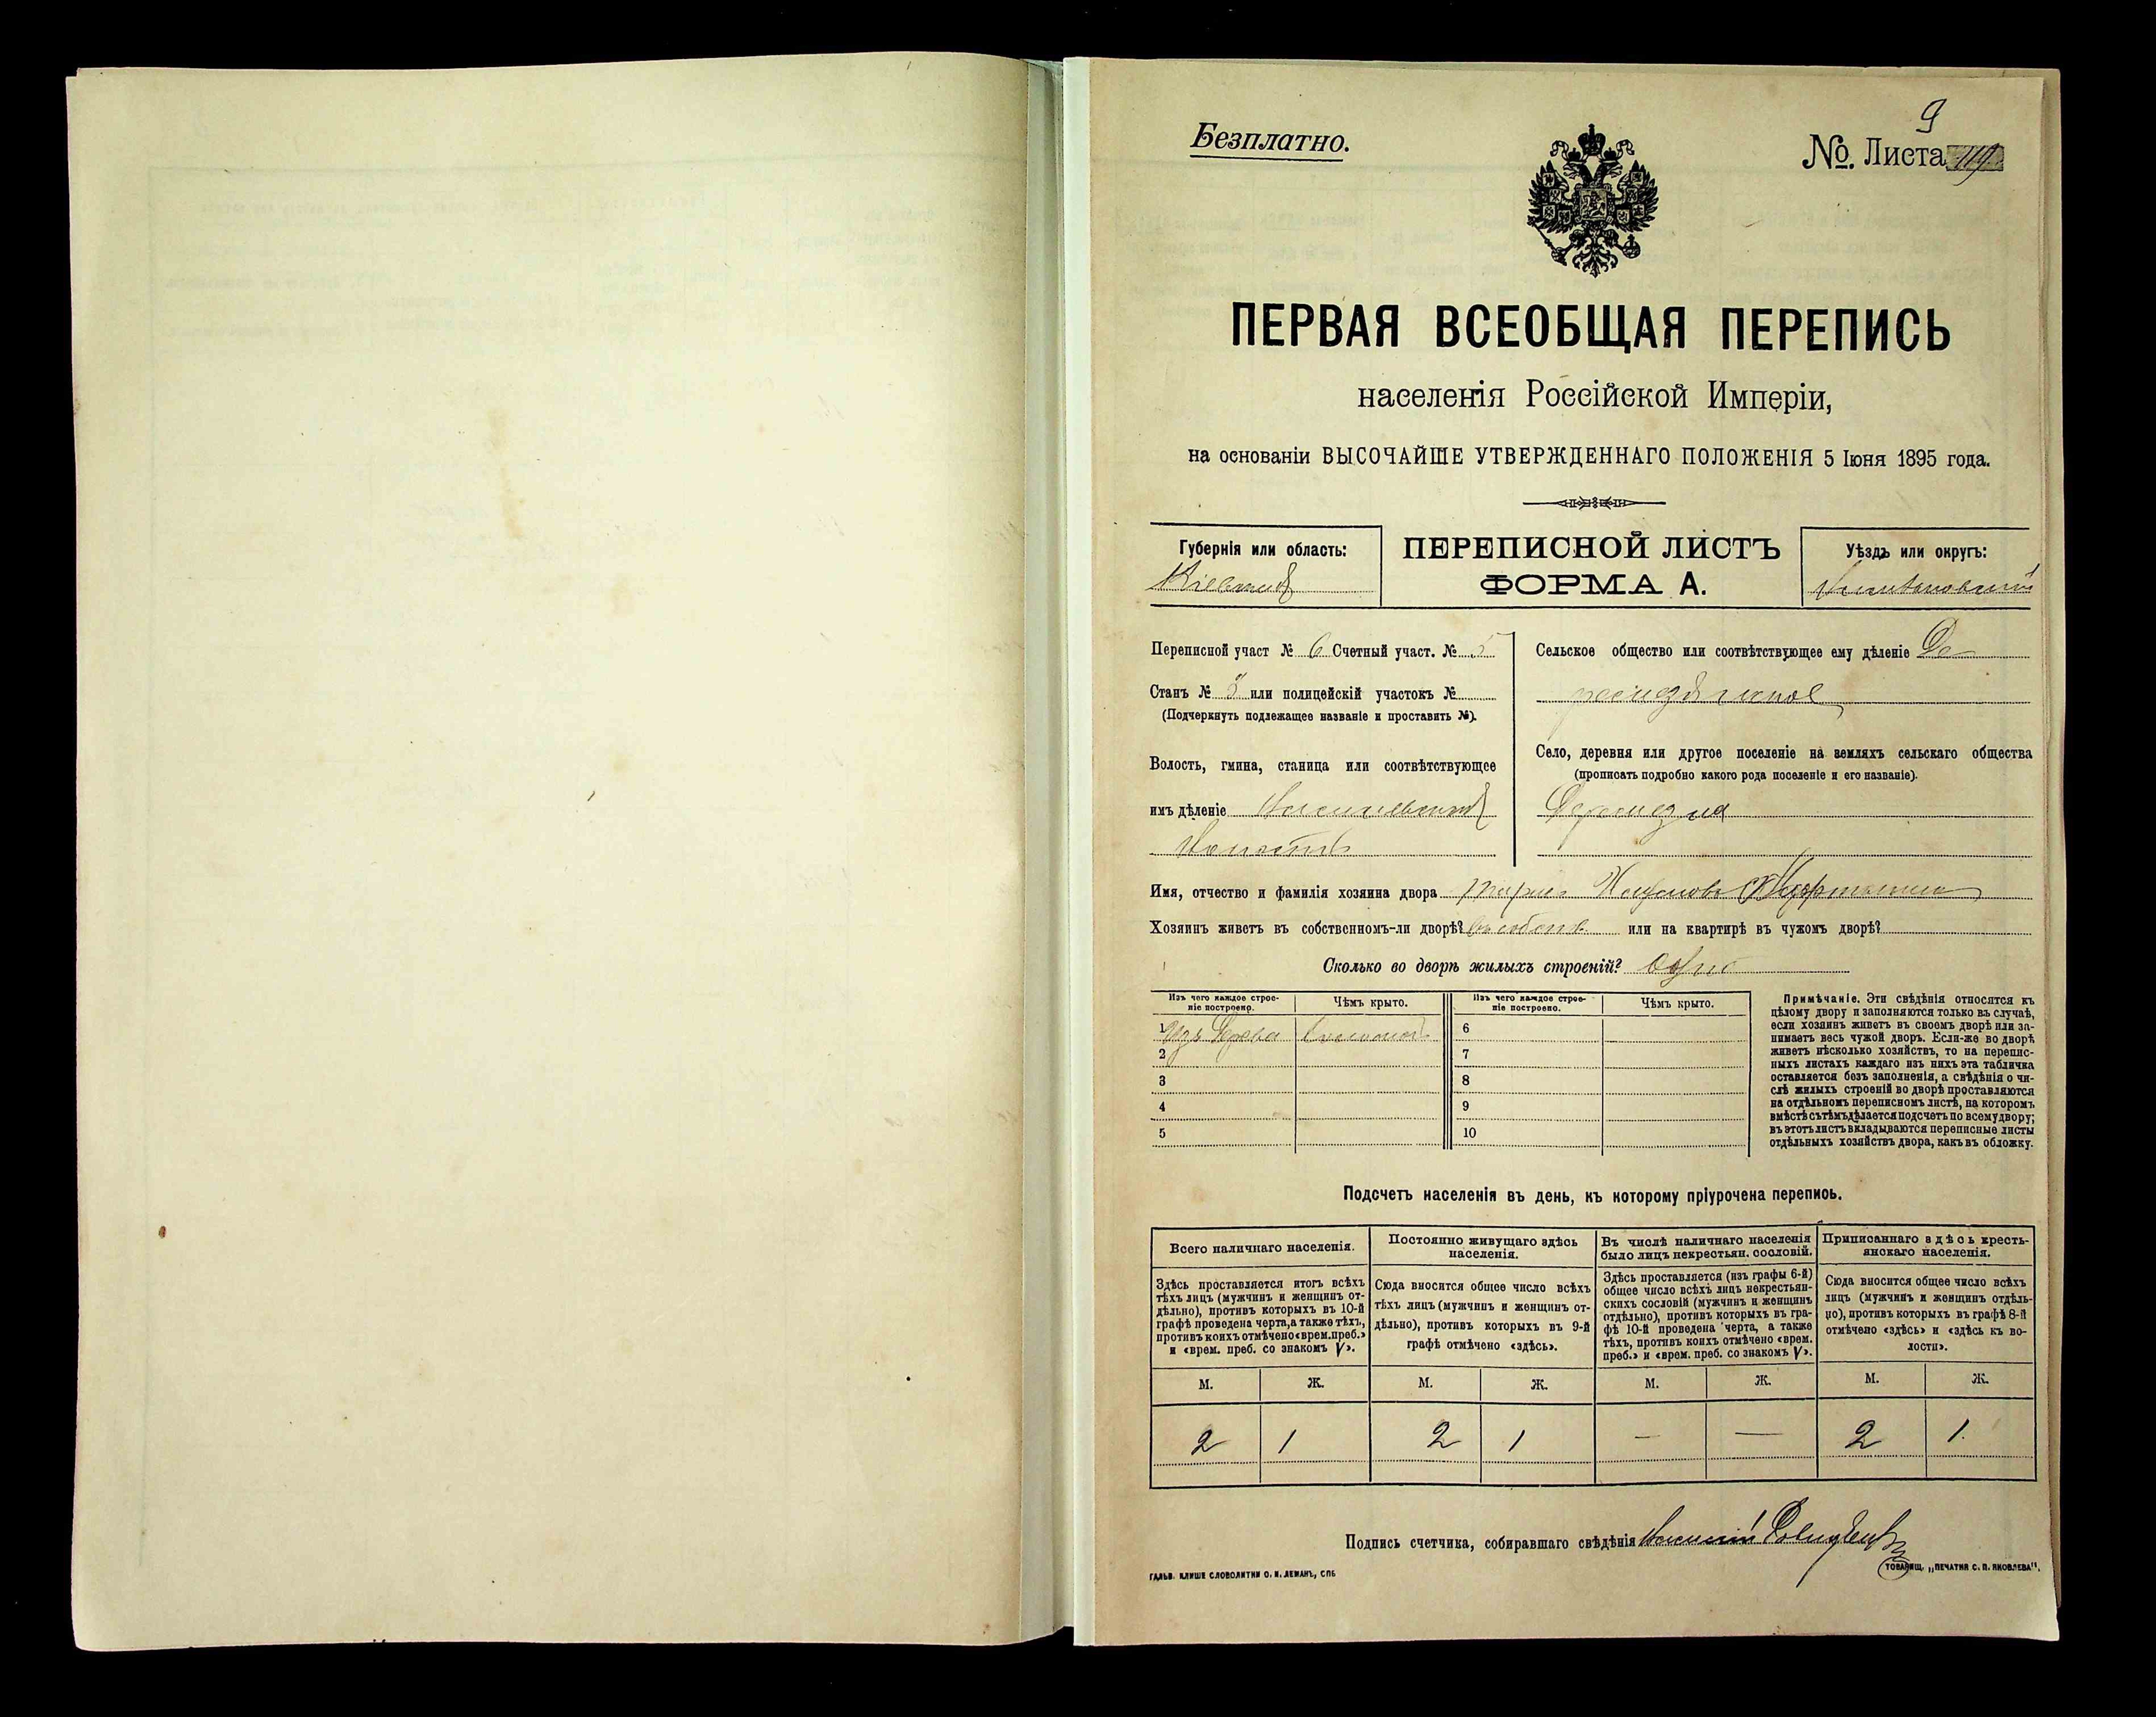 Безплатно.
9
№. Листа 119
ПЕРВАЯ ВСЕОБЩАЯ ПЕРЕПИСЬ
населенія Россійской Имперіи,
на основаніи ВЫСОЧАЙШЕ УТВЕРЖДЕННАГО ПОЛОЖЕНІЯ 5 Іюня 1895 года.
Губернія или область:
Кіевская
ПЕРЕПИСНОЙ ЛИСТЪ
ФОРМА А.
Уѣздъ или округъ:
Переписной участ № 6 Счетный участ. № 5
Станъ № 3 или полицейскій участокъ №
(Подчеркнуть подлежащее названіе и проставить №).
Волость, гмина, станица или соотвѣтствующее
имъ дѣленіе
Сельское общество или соотвѣтствующее ему дѣленіе
Село, деревня или другое поселеніе на земляхъ сельскаго общества
(прописать подробно какого рода поселеніе и его названіе).
Имя, отчество и фамилія хозяина двора
Хозяинъ живетъ въ собственномъ-ли дворѣ? въ собств или на квартирѣ въ чужомъ дворѣ?
Сколько во дворѣ жилыхъ строеній? одно
Изъ чего каждое строе-
ніе построено.
Чѣмъ крыто.
Изъ чего каждое строе-
ніе построено.
Чѣмъ крыто.
1 Изъ дерева Соломой 6
2 7
3 8
4 9
5 10
Примѣчаніе. Эти свѣдѣнія относятся къ
цѣлому двору и заполняются только въ случаѣ,
если хозяинъ живетъ въ своемъ дворѣ или за-
нимаетъ весь чужой дворъ. Если-же во дворѣ
живетъ нѣсколько хозяйствъ, то на перепис-
ныхъ листахъ каждаго изъ нихъ эта табличка
оставляется безъ заполненія, а свѣдѣнія о чи-
слѣ жилыхъ строеній во дворѣ проставляются
на отдѣльномъ переписномъ листѣ, на которомъ
вмѣстѣ съ тѣмъ дѣлается подсчетъ по всему двору;
въ этотъ листъ вкладываются переписные листы
отдѣльныхъ хозяйствъ двора, какъ въ обложку.
Подсчетъ населенія въ день, къ которому пріурочена перепись.
Всего наличнаго населенія.
Здѣсь проставляется итогъ всѣхъ
тѣхъ лицъ (мужчинъ и женщинъ от-
дѣльно), противъ которыхъ въ 10-й
графѣ проведена черта, а также тѣхъ,
противъ коихъ отмѣчено «врем. преб.»
и «врем. преб. со знакомъ V».
Постоянно живущаго здѣсь
населенія.
Сюда вносится общее число всѣхъ
тѣхъ лицъ (мужчинъ и женщинъ от-
дѣльно), противъ которыхъ въ 9-й
графѣ отмѣчено «здѣсь».
Въ числѣ наличнаго населенія
было лицъ некрестьян. сословій.
Здѣсь проставляется (изъ графы 6-й)
общее число всѣхъ лицъ некрестьян-
скихъ сословій (мужчинъ и женщинъ
отдѣльно), противъ которыхъ въ гра-
фѣ 10-й проведена черта, а также
тѣхъ, противъ коихъ отмѣчено «врем.
преб.» и «врем. преб. со знакомъ V».
Приписаннаго здѣсь кресть-
янскаго населенія.
Сюда вносится общее число всѣхъ
лицъ (мужчинъ и женщинъ отдѣль-
но), противъ которыхъ въ графѣ 8-й
отмѣчено «здѣсь» и «здѣсь къ во-
лости».
М. Ж. М. Ж. М. Ж. М. Ж.
2 1 2 1 — — 2 1
Подпись счетчика, собиравшаго свѣдѣнія
ГАЛЬВ. КЛИШЕ СЛОВОЛИТНИ О. И. ЛЕМАНЪ, СПБ
ТОВАРИЩ. „ПЕЧАТНЯ С. П. ЯКОВЛЕВА".